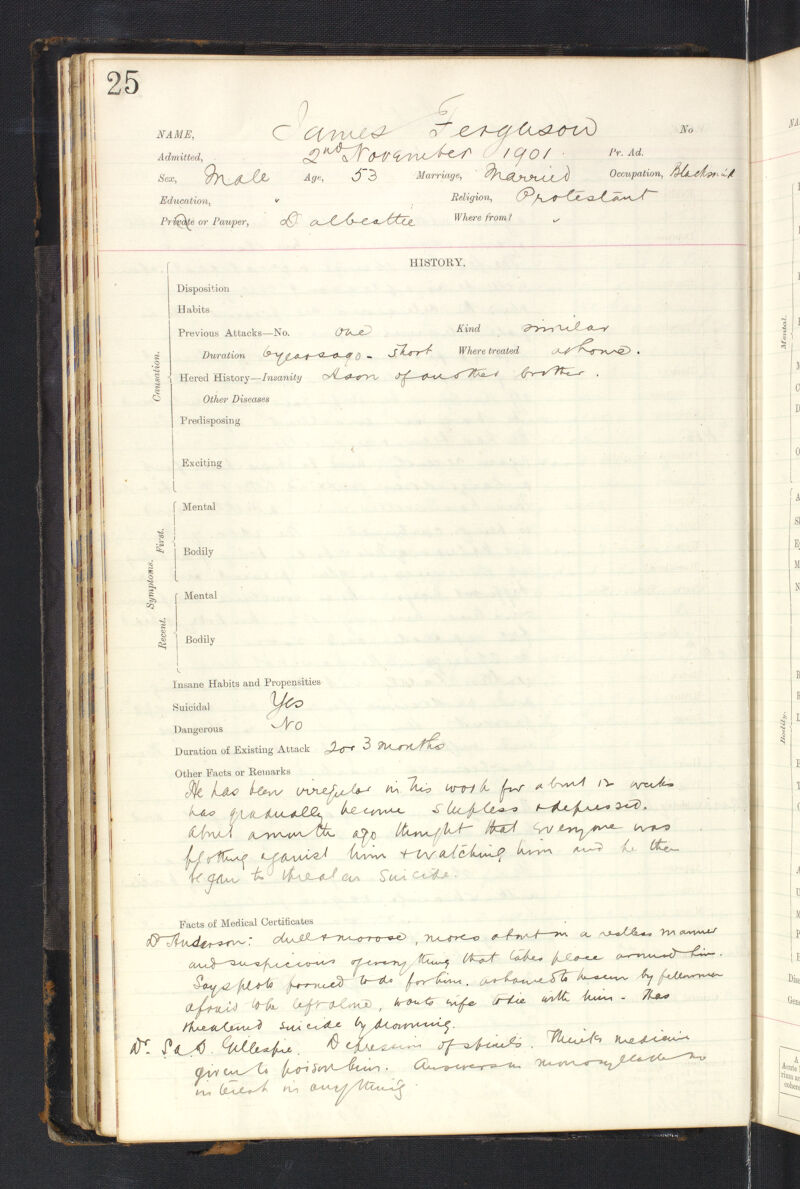 25
NAME, James Ferguson No
Admitted, 2nd November 1901. Pr. Ad.
Sex, Male Age, 53 Marriage, Married Occupation, Blacksmith
Education, " Religion, Protestant
Private or Pauper, Dalbeattie Where from? "
HISTORY.
Causation.
Disposition
Habits
Previous Attacks—No. One Kind similar
Duration 6 years ago - short Where treated at home.
Hered History—Insanity A son of another brother.
Other Diseases
Predisposing
Exciting
Symptoms.
First.
Mental
Bodily
Recent.
Mental
Bodily
Insane Habits and Propensities
Suicidal Yes
Dangerous No
Duration of Existing Attack 2 or 3 months
Other Facts or Remarks
He has been irregular in his work for about 12 weeks
has gradually become sleepless + depressed.
About a month ago thought that everyone was
plotting against him + watching him and he then
began to threaten suicide.
Facts of Medical Certificates
Dr Anderson: dull + morose, moves about in a restless manner
and suspicious of every thing that takes place around him.
Says plots formed to do for him. ashamed to be seen by fellowmen
afraid to be left alone, wants wife to die with him - Has
threatened suicide by drowning.
Dr. Gillespie. Depression of spirits. Thinks medicine
given to poison him. Answers in monosyllables no
interest in anything.